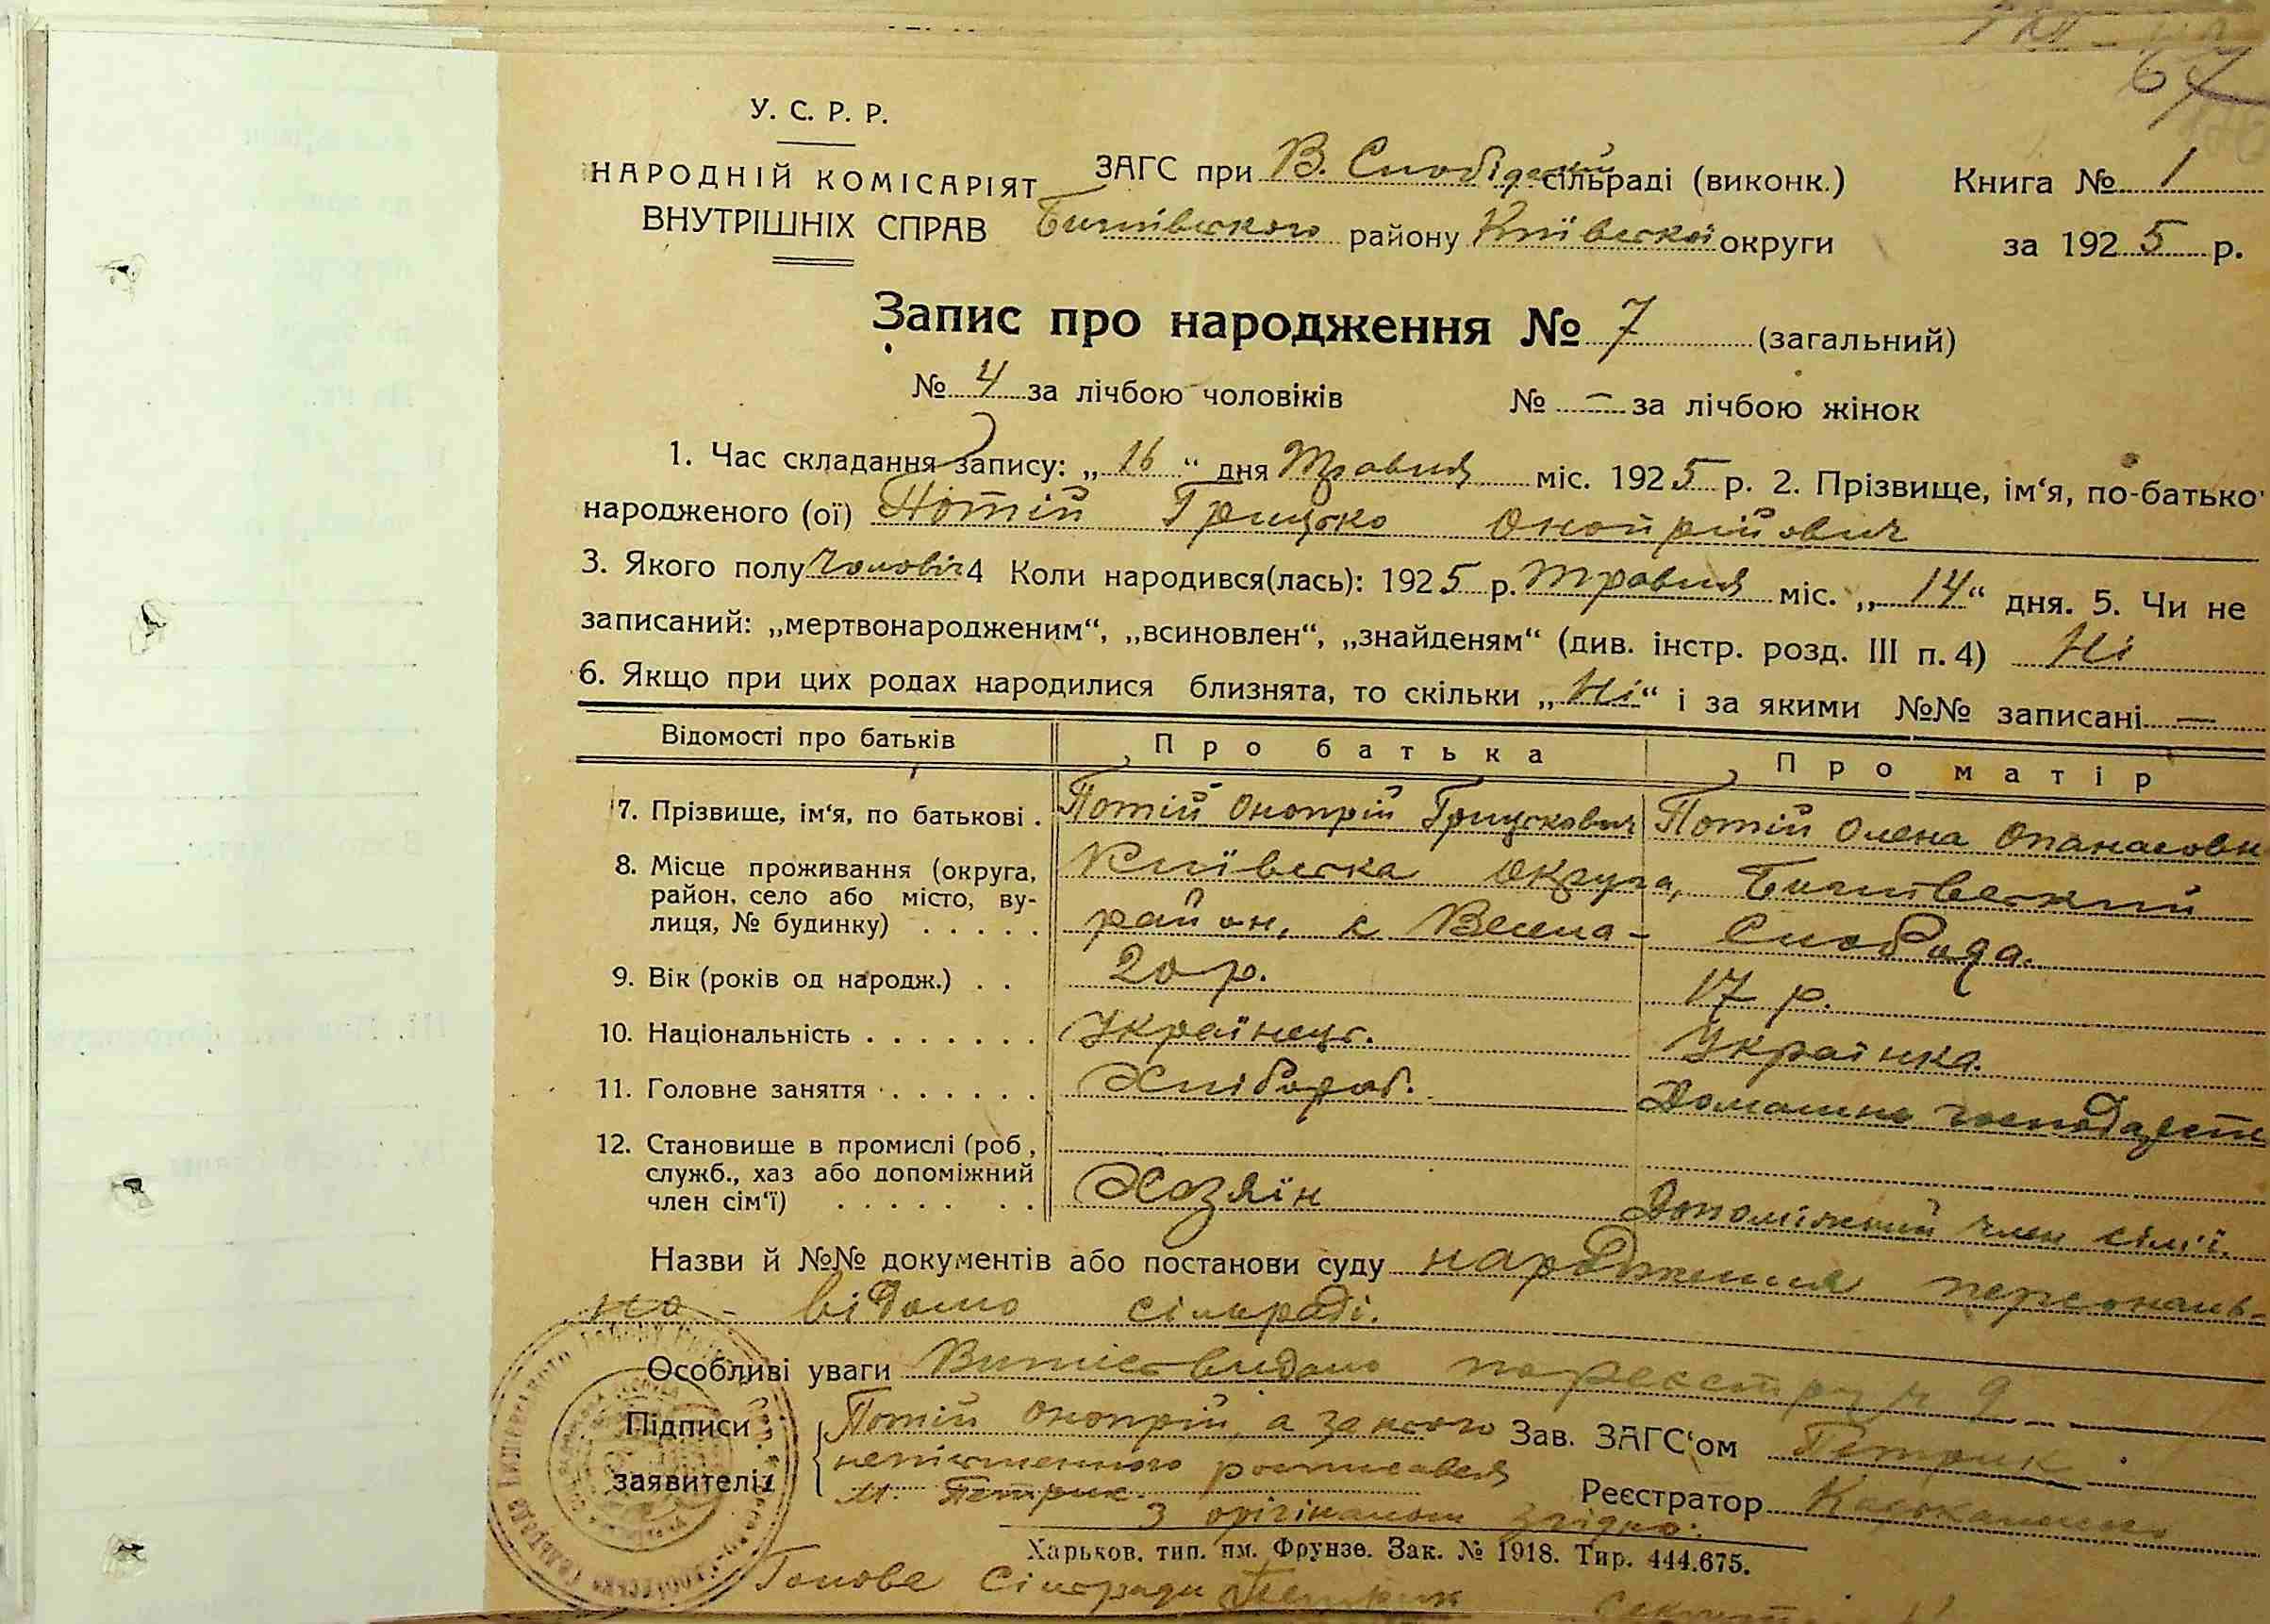 67
У. С. Р. Р.
НАРОДНІЙ КОМІСАРІЯТ
ВНУТРІШНІХ СПРАВ
ЗАГС при В. Слобідській сільраді (виконк.)
Книга № 1
Бишівського району Київської округи
за 1925 р.
Запис про народження № 7 (загальний)
№ 4 за лічбою чоловіків № — за лічбою жінок
1. Час складання запису: „16“ дня Травня міс. 1925 р. 2. Прізвище, ім‘я, по-батько
народженого (ої) Потій Грицько Онопрійович
3. Якого полу Чоловіч 4 Коли народився(лась): 1925 р. Травня міс. „14“ дня. 5. Чи не
записаний: „мертвонародженим“, „всиновлен“, „знайденям“ (див. інстр. розд. III п. 4) Ні
6. Якщо при цих родах народилися близнята, то скільки „Ні“ і за якими №№ записані —
Відомості про батьків Про батька Про матір
7. Прізвище, ім‘я, по батькові . Потій Онопрій Грицькович Потій Олена Опанасовн
8. Місце проживання (округа, район, село або місто, ву-
лиця, № будинку) . . . . . Київська округа, Бишівський
район, с Велика - Слобода.
9. Вік (років од народж.) . . 20 р. 17 р.
10. Національність . . . . . . . Українець. Українка.
11. Головне заняття . . . . . . . Хлібороб. Домашнє господарст
12. Становище в промислі (роб,
служб., хаз або допоміжний
член сім‘ї) . . . . . . . Хозяїн Допоміжний член сім'ї.
Назви й №№ документів або постанови суду народження персональ-
но - відомо сільраді.
Особливі уваги Витяг видано по реєстру ч 9
Підписи
заявителів
Потій Онопрій, а за нього
неписьменного росписався
М. Петрик.
Зав. ЗАГС‘ом Петрик
Реєстратор
З орігіналом згідно:
Харьков. тип. им. Фрунзе. Зак. № 1918. Тир. 444.675.
Голова Сільради Петрик